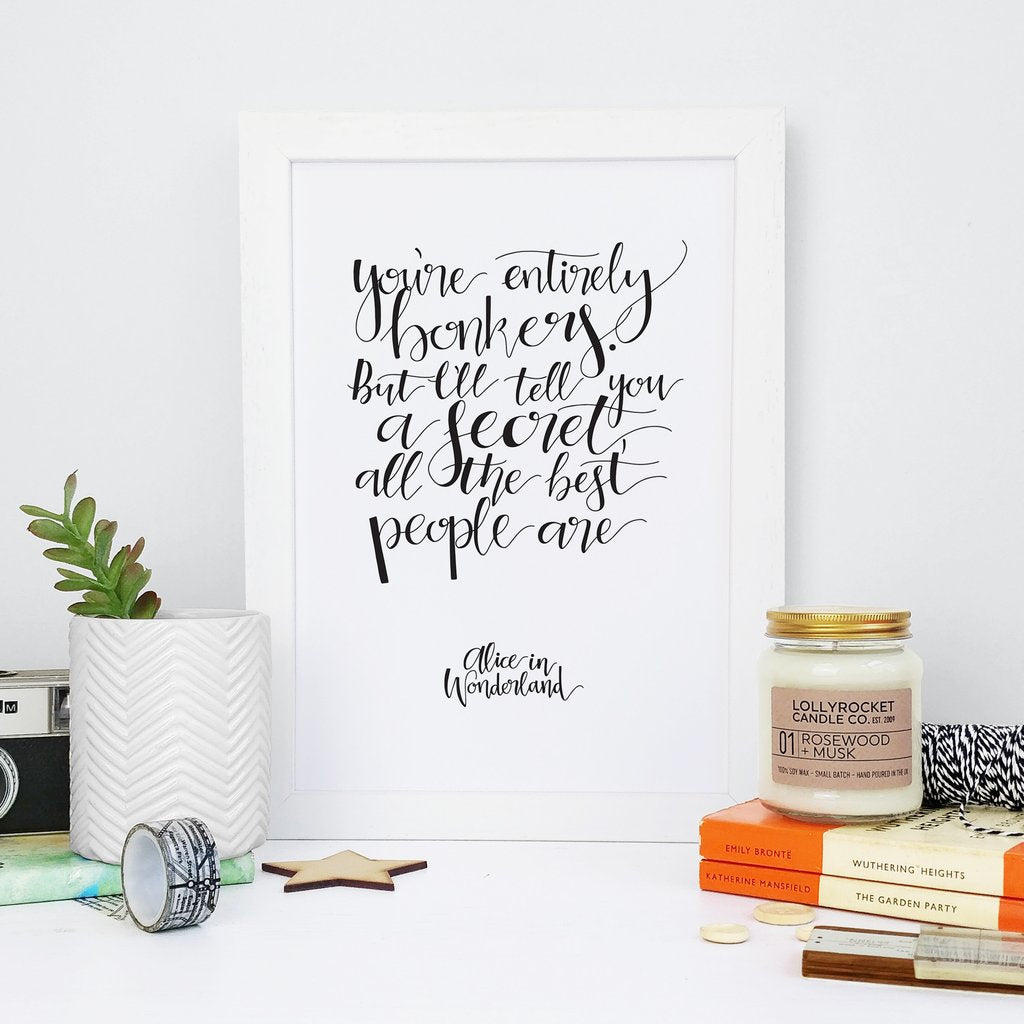 you're entirely
bonkers.
But I'll tell you
a secret,
all the best
people are
Alice in
Wonderland
LOLLYROCKET
CANDLE CO. EST. 2009
01 ROSEWOOD
+ MUSK
100% SOY WAX - SMALL BATCH - HAND POURED IN THE UK
EMILY BRONTE WUTHERING HEIGHTS
KATHERINE MANSFIELD THE GARDEN PARTY